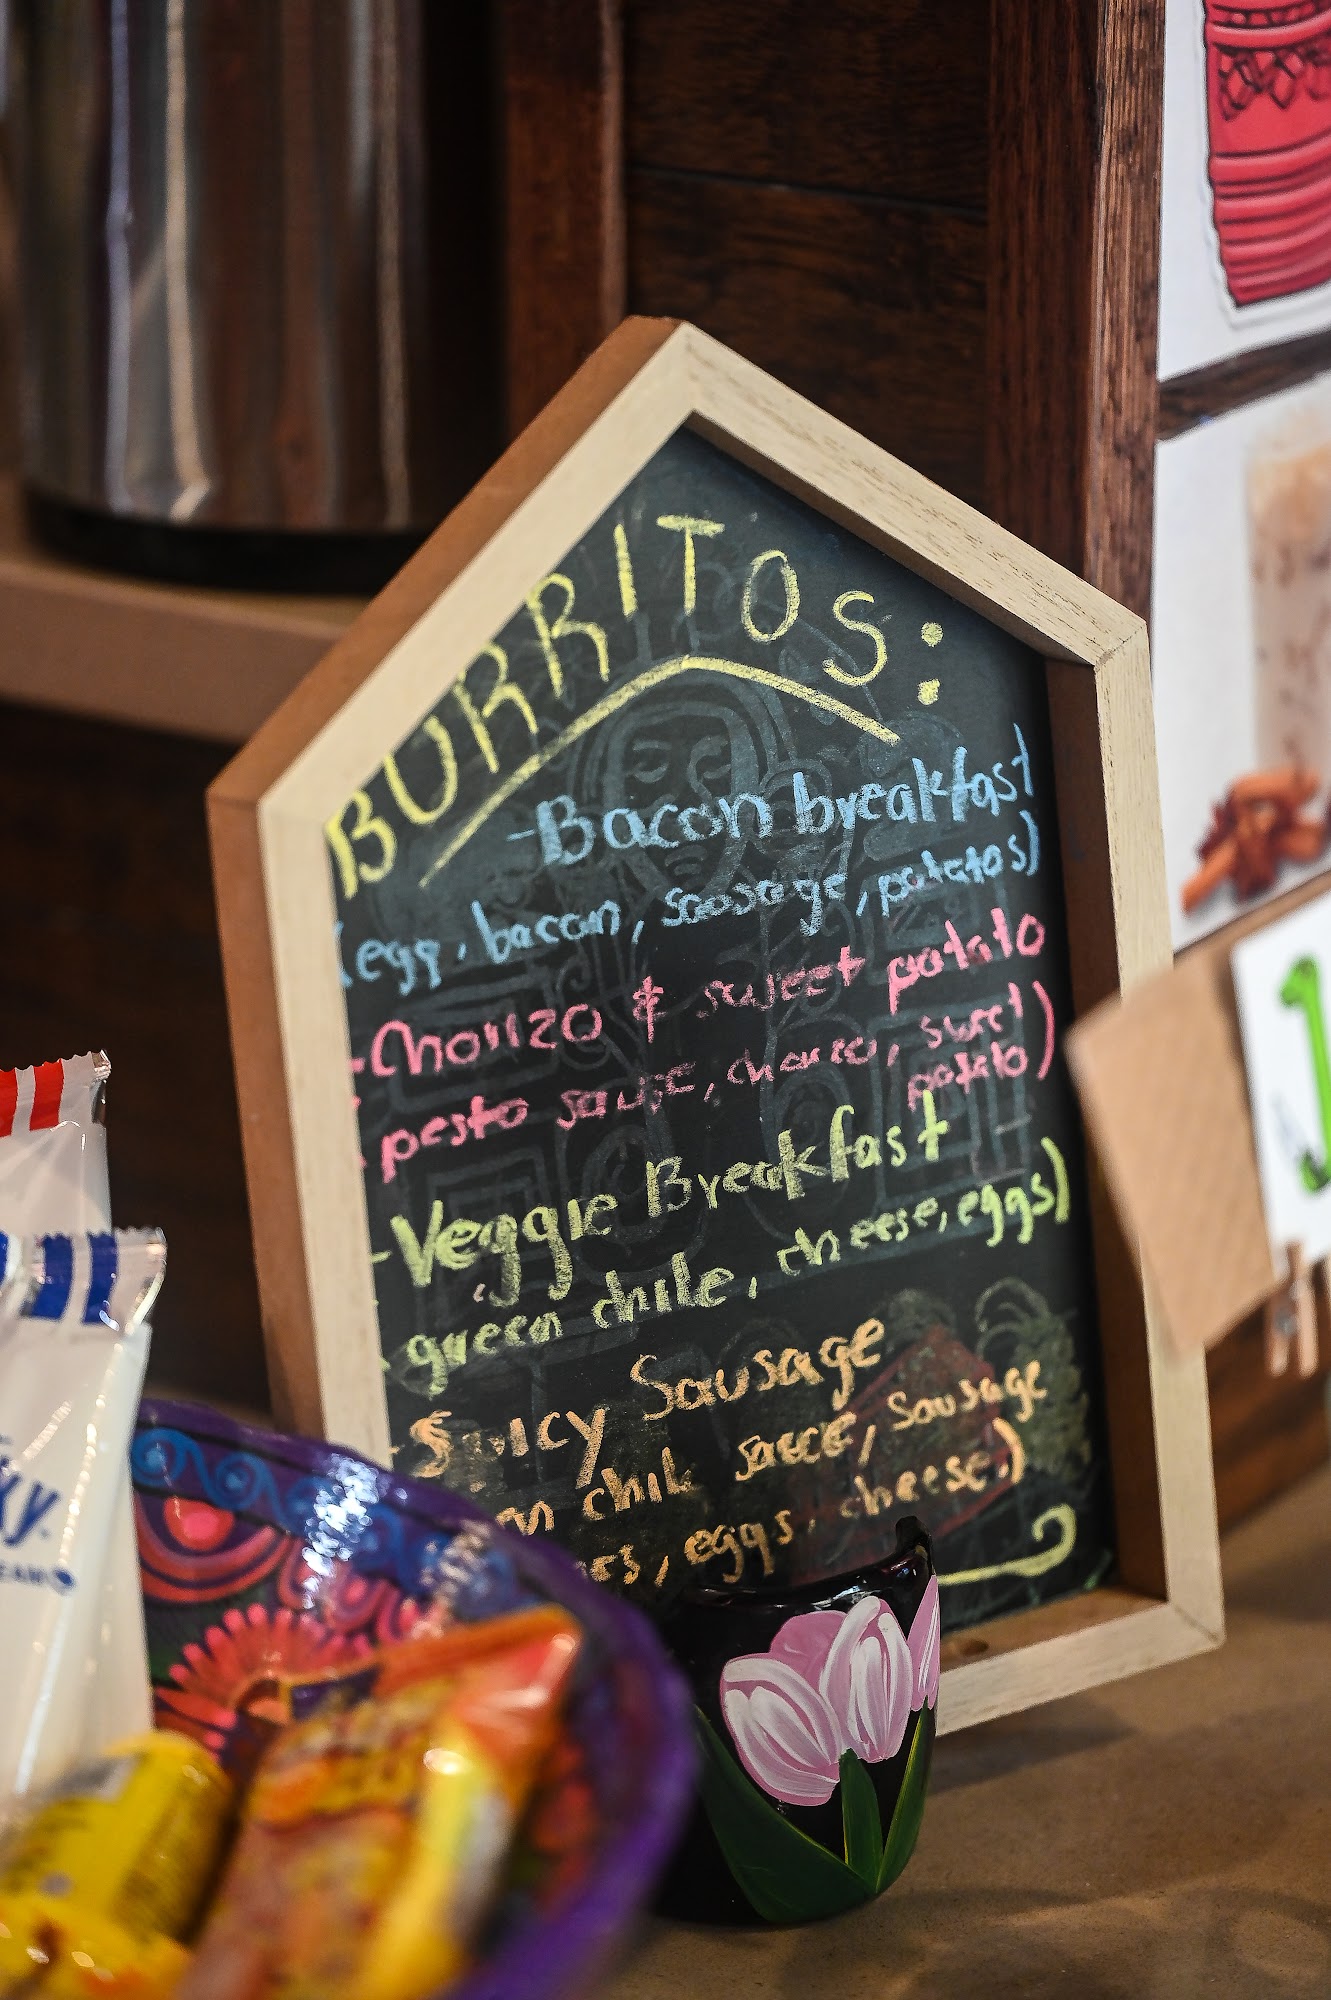 BURRITOS:
-Bacon breakfast
(egg, bacon, sausage, potatos)
-Chorizo & sweet potato
(pesto sause, chorizo, sweet
potato)
-Veggie Breakfast
green chile, cheese, eggs)
-Spicy Sausage
chile sauce, sausage
eggs, cheese.)